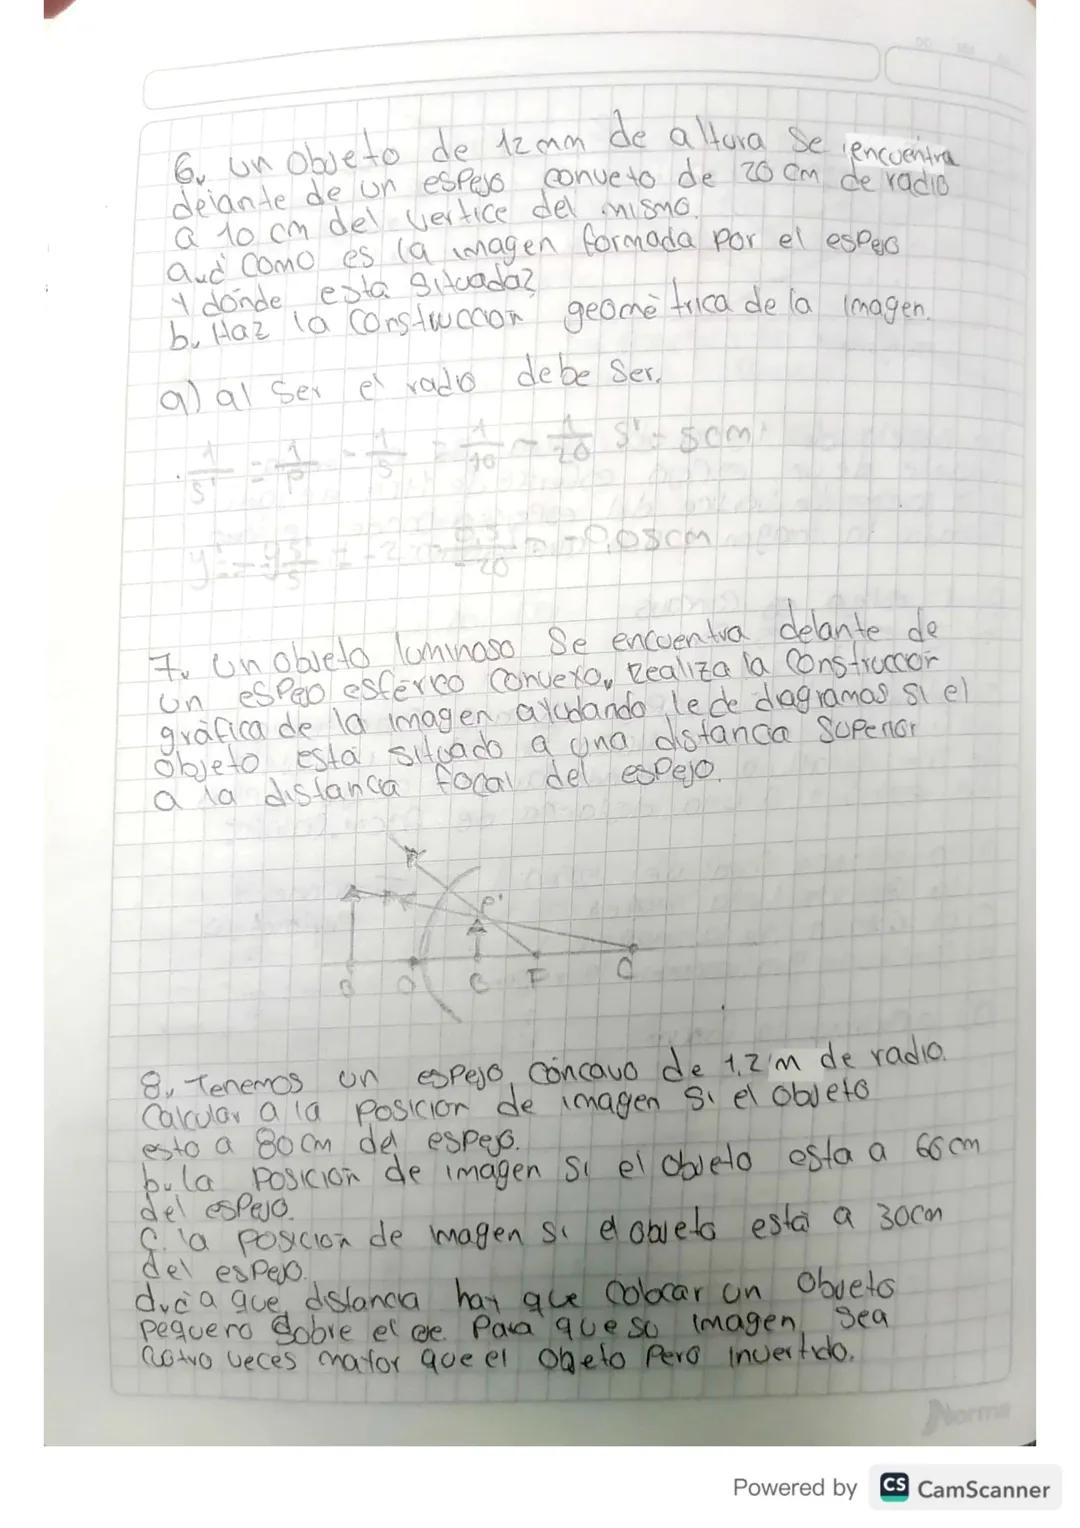 6. un objeto de 12mm de altura se encuentra
delante de un espejo convexo de 20 cm de radio
a 10 cm del vertice del mismo.
a ¿ como es la imagen formada por el espejo
y dónde esta situada?
b. Haz la construccion geométrica de la imagen.
a) al ser el radio debe ser.
1/s' = 1/F - 1/s = 1/10 - 1/20 s' = 5cm
y' = - y s'/s = -2 0,5/-20 = -0,05cm
7. un objeto luminoso se encuentra delante de
un espejo esférico convexo, realiza la construccion
gráfica de la imagen ayudando le de diagramas si el
objeto está situado a una distancia superior
a la distancia focal del espejo.
F'
O C F C
8. Tenemos un espejo cóncavo de 1,2 m de radio.
Calcular a la posicion de imagen si el objeto
esto a 80cm del espejo.
b. la posición de imagen si el objeto esta a 66cm
del espejo.
c. la posición de imagen si el objeto está a 30cm
del espejo.
d. ¿a que distancia hay que colocar un objeto
pequero sobre el eje para que su imagen sea
cuatro veces mayor que el objeto pero invertido.
Norma
Powered by CS CamScanner